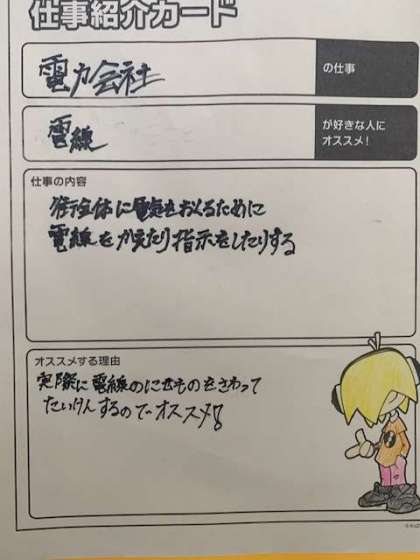 仕事紹介カード
電力会社
の仕事
電線
が好きな人に
オススメ!
仕事の内容
街全体に電気をおくるために
電線をかえたり指示をしたりする
オススメする理由
実際に電線のにせものをさわって
たいけんするのでオススメ!